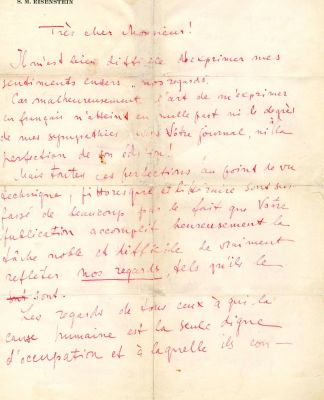 S. M. EISENSTEIN
Très cher Monsieur!
Il m'est bien difficile d'exprimer mes
sentiments envers „nos regards.
Car malheureusement l'art de m'exprimer
en français n'atteint en nulle part ni le degrès
de mes sympathies vers Votre journal, ni la
perfection de son édition!
Mais toutes ces perfections au point de vu
technique, pittoresque et littéraire sont sur-
passé de beaucoup par le fait que Votre
publication accomplit heureusement la
tâche noble et difficile de vraiment
refléter nos regards, tels qu'ils le
sont.
Les regards de tous ceux à qui la
cause humaine est la seule digne
d'occupation et à laquelle ils con—